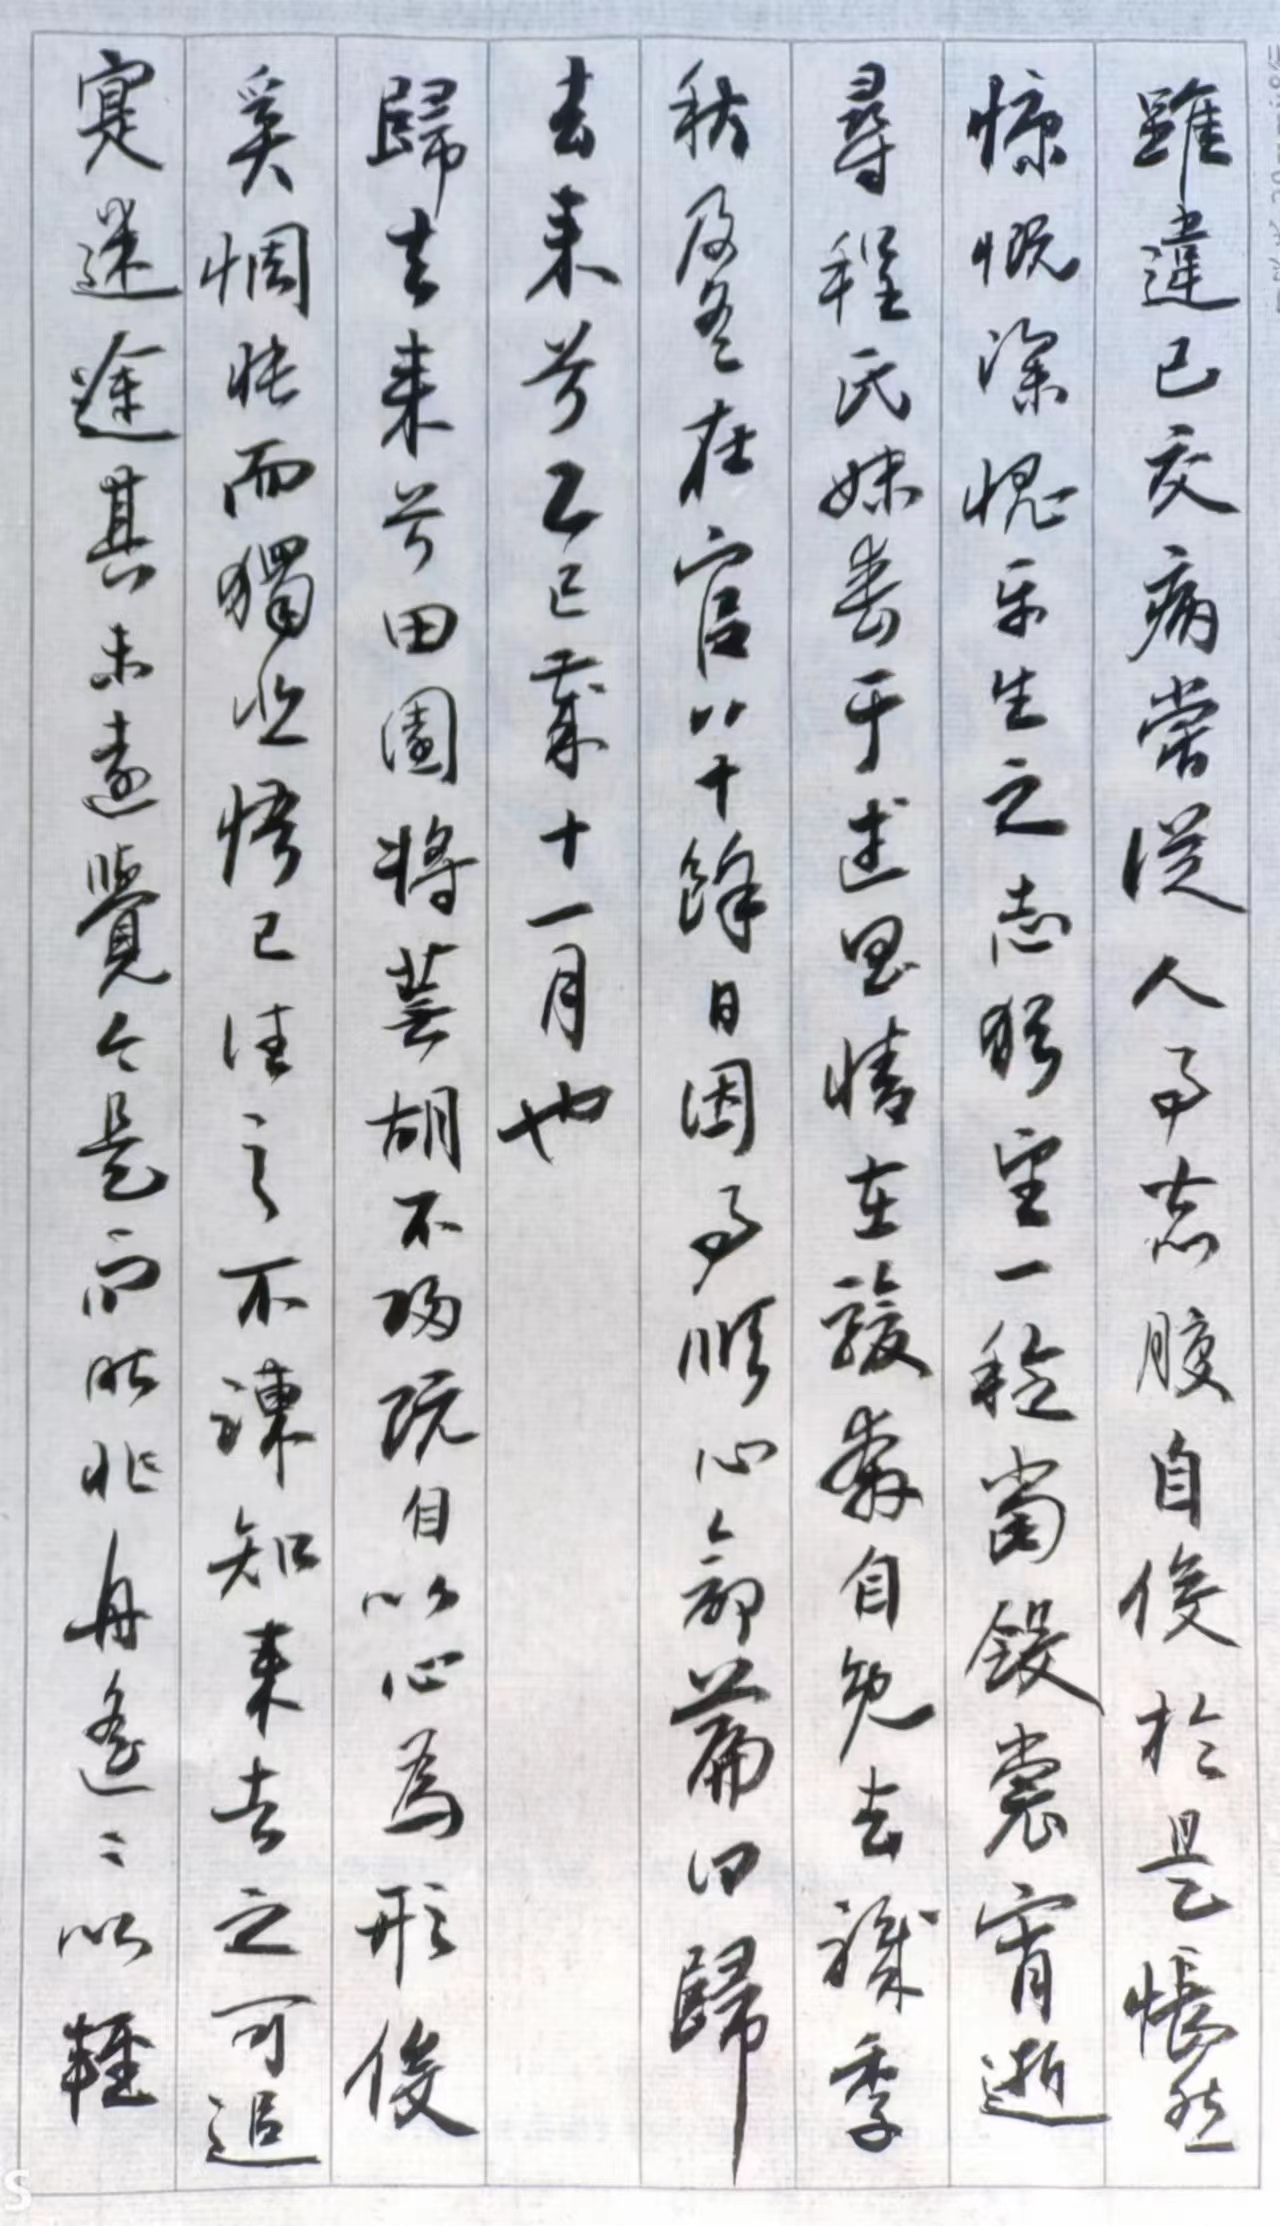 雖違己交病嘗從人事腹自役於是悵然
慷慨深愧平生之志猶望一稔當斂裳宵逝
尋程氏妹喪于武昌情在駿奔自免去職季
秋及冬在官八十餘日因事順心命篇曰歸
去來兮乙巳歲十一月也
歸去來兮田園將蕪胡不歸既自以心為形役
奚惆悵而獨悲悟已往之不諫知來者之可追
寔迷途其未遠覺今是而昨非舟遙〻以輕